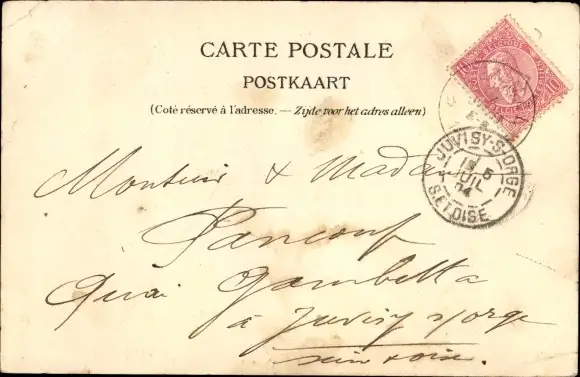 CARTE POSTALE
POSTKAART
(Coté réservé à l'adresse. — Zijde voor het adres alleen)
10 10
JUVISY-S-ORGE
18 5
JUIL
04
S. ET OISE
Monsieur & Madame
Pancouf
Quai Gambetta
à Juvisy s/orge
seine & oise.